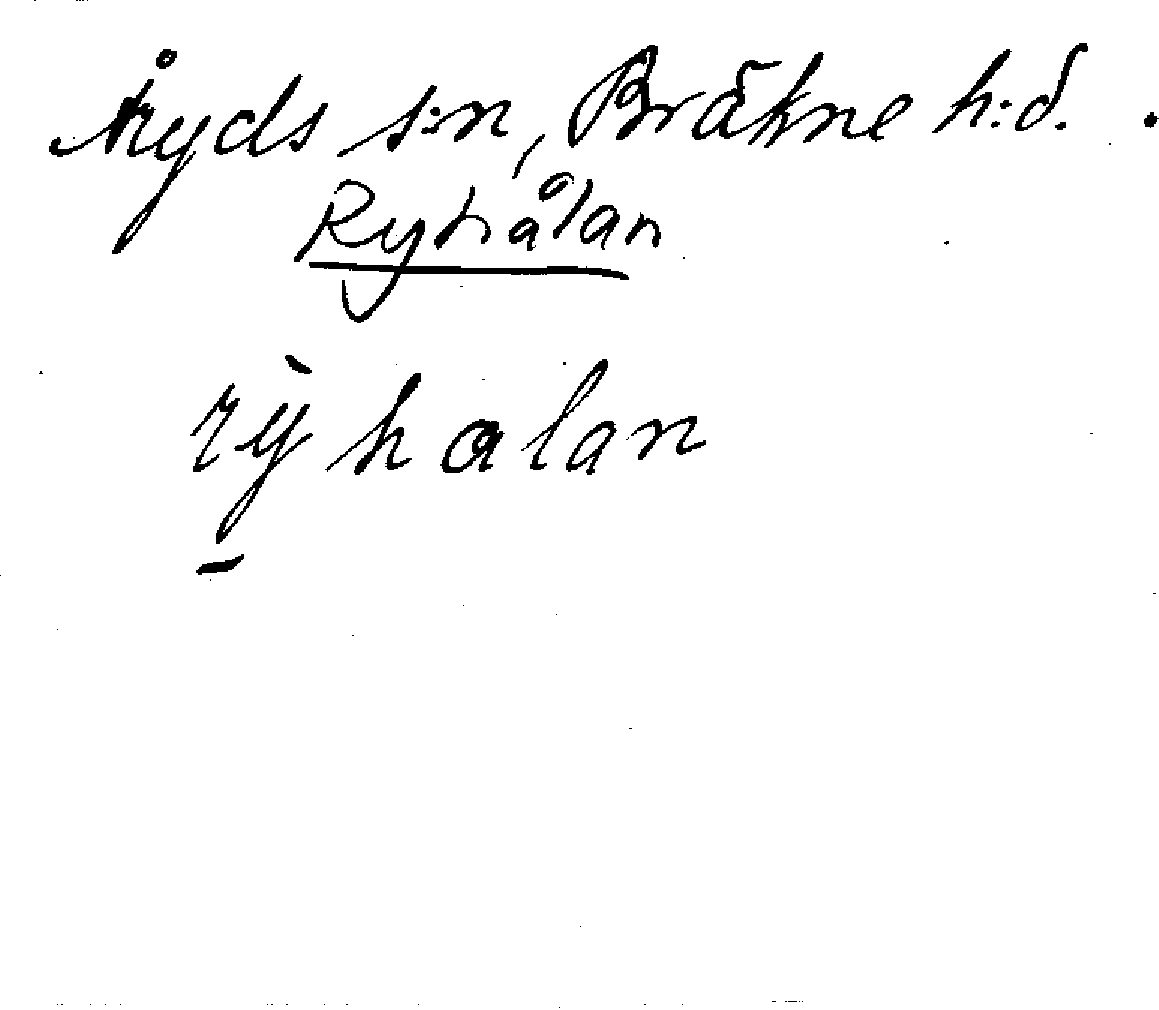 Åryds s:n, Bräkne h:d.
Ryhålan
rỳhalan